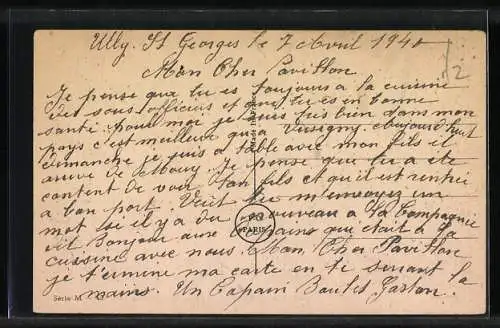 Ully St Georges le 7 Avril 1940
Mon Cher Pavillon
Je pense que tu es toujours a la cuisine
des sous officiers et que tu es en bonne
santé pour moi je suis très bien dans mon
pays c'est meilleur qu'a aujourd'hui
dimanche je suis a table avec mon fils il
arrive de Mouy. Je pense que tu a été
content de voir ton fils et qu'il est rentré
a bon port. Veut tu m'envoyer un
mot si il y a du nouveau a la Compagnie
dit Bonjour aux copains qui était a la
cuisine avec nous. Mon Cher Pavillon
je termine ma carte en te serrant la
mains. Un Copain Gaston.
Série M
PARIS
2